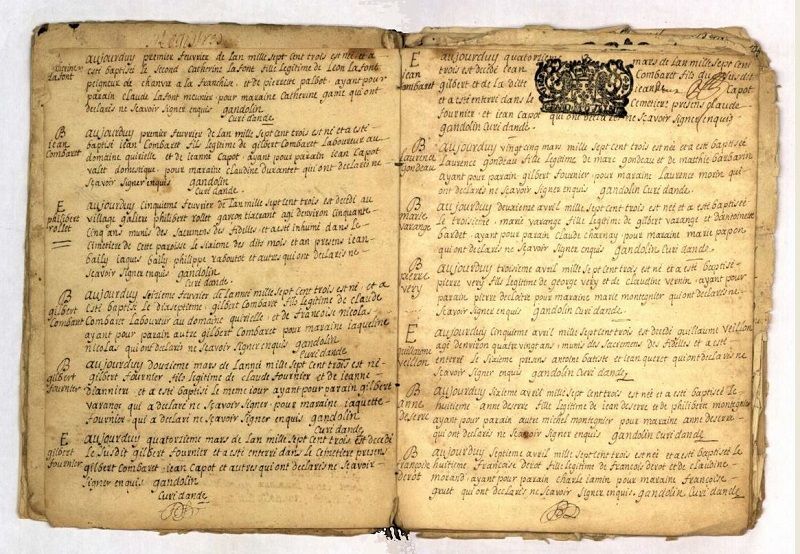 B
Catherine
Lafont
aujourduy premier fevrier de Lan mille sept cent trois est néé et a
esté baptiséé Le second Catherine Lafont fille legitime de Leon Lafont
peigneur de chanvre a la franchise et de pierrette palbot ayant pour
parain claude Lafont meunier pour maraine Catherine game qui ont
declarés ne scavoir Signer enquis gandolin
Curé dande
B
jean
Combaret
aujourduy premier feuvrier de Lan mille Sept cent trois est né et a esté
baptisé jean Combaret fils legitime de gilbert Combaret Laboureur au
domaine quirielle et de jeanne Capot ayant pour parain jean Capot
valet domestique pour maraine claudine durantet qui ont declarés ne
Scavoir Signer enquis gandolin
Curé dande
E
philibert
rollet
aujourduy cinquiême feuvrier de Lan mille sept cent trois est decedé au
village philibert rollet garçon agé denviron cinquante
cinq ans munis des Sacremens des fidelles et a esté inhumé dans Le
cimetiere de cette paroisse le Sixiême des dits mois et an presens jean
bailly philippe raboutot et autres qui ont declarés ne
Scavoir Signer enquis gandolin
Curé dande
B
gilbert
Combaret
aujourduy Seixiême feuvrier de Lanneé mille Sept cent trois est né et a
esté baptisé Le dixseptiême gilbert Combaret fils legitime de claude
Combaret Laboureur au domaine quirielle et de françoise nicolas
ayant pour parain autre gilbert Combaret pour maraine jaqueline
nicolas qui ont declarés ne Scavoir Signer enquis gandolin
Curé dande
B
gilbert
fournier
aujourduy Douxiême mars de Lanneé mille Sept cent trois est né
gilbert fournier fils legitime de claud fournier et de jeanne
dianniere et a esté baptisé Le meme jour ayant pour parain gilbert
varange qui a declaré ne Scavoir Signer pour maraine jaquette
fournier qui a declaré ne Scavoir Signer enquis gandolin
Curé dande
E
gilbert
fournier
aujourduy quatorsiême mars de Lan mille Sept cent trois est decedé
Le Susdit gilbert fournier et a esté enterré dans le Cemetiere presens
gilbert Combaret jean Capot et autres qui ont declarés ne Scavoir
Signer enquis gandolin
Curé dande
E
jean
Combaret
aujourduy quatorsiême mars de Lan mille Sept cent
trois est decedé jean Combaret fils du Susdit
gilbert et de La ditte jeanne Capot
et a esté enterré dans Le Cemetiere presens claude
fournier et jean Capot qui ont declarés ne Scavoir Signer enquis
gandolin Curé dande
B
Laurence
gondeau
aujourduy vingt cinq mars mille Sept cent trois est néé et a esté baptiséé
Laurence gondeau fille legitime de marc gondeau et de matthie barbarin
ayant pour parain gilbert fournier pour maraine Laurence morin qui
ont declarés ne Scavoir Signer enquis gandolin Curé dande
B
marie
varange
aujourduy deuxiême avril mille Sept cent trois est néé et a esté baptiséé
Le troisieme marie varange fille legitime de gilbert varange et dantoinette
bardet ayant pour parain claude charnay pour maraine marie papon
qui ont declarés ne Scavoir Signer enquis gandolin Curé dande
B
pierre
very
aujourduy troisiême avril mille Sept cent trois est né et a esté baptisé
pierre very fils Legitime de george very et de claudine vernin ayant pour
parain pierre pour maraine marie montegnier qui ont declarés ne
Scavoir Signer enquis gandolin Curé dande
E
guillaume
veillon
aujourduy cinquiême avril mille Sept cent trois est decedé guillaume veillon
agé denviron quatre vingt ans munis des Sacremens des fidelles et a esté
enterré le Sixiême presens antoine batiste et jean queret qui ont declarés ne
Scavoir Signer enquis gandolin Curé dande
B
anne
deserre
aujourduy Sixiême avril mille Sept cent trois est néé et a esté baptiséé Le
huitiême anne deserre fille Legitime de jean deserre et de philiberte montegnier
ayant pour parain autre michel montegnier pour maraine anne deserre
qui ont declarés ne Scavoir Signer enquis gandolin Curé dande
B
françoise
derot
aujourduy Septiême avril mille Sept cent trois est néé et a esté baptiséé Le
huitiême françoise derot fille legitime de françois derot et de claudine
morand ayant pour parain charle jamin pour maraine françoise
gruet qui ont declarés ne Scavoir Signer enquis gandolin Curé dande